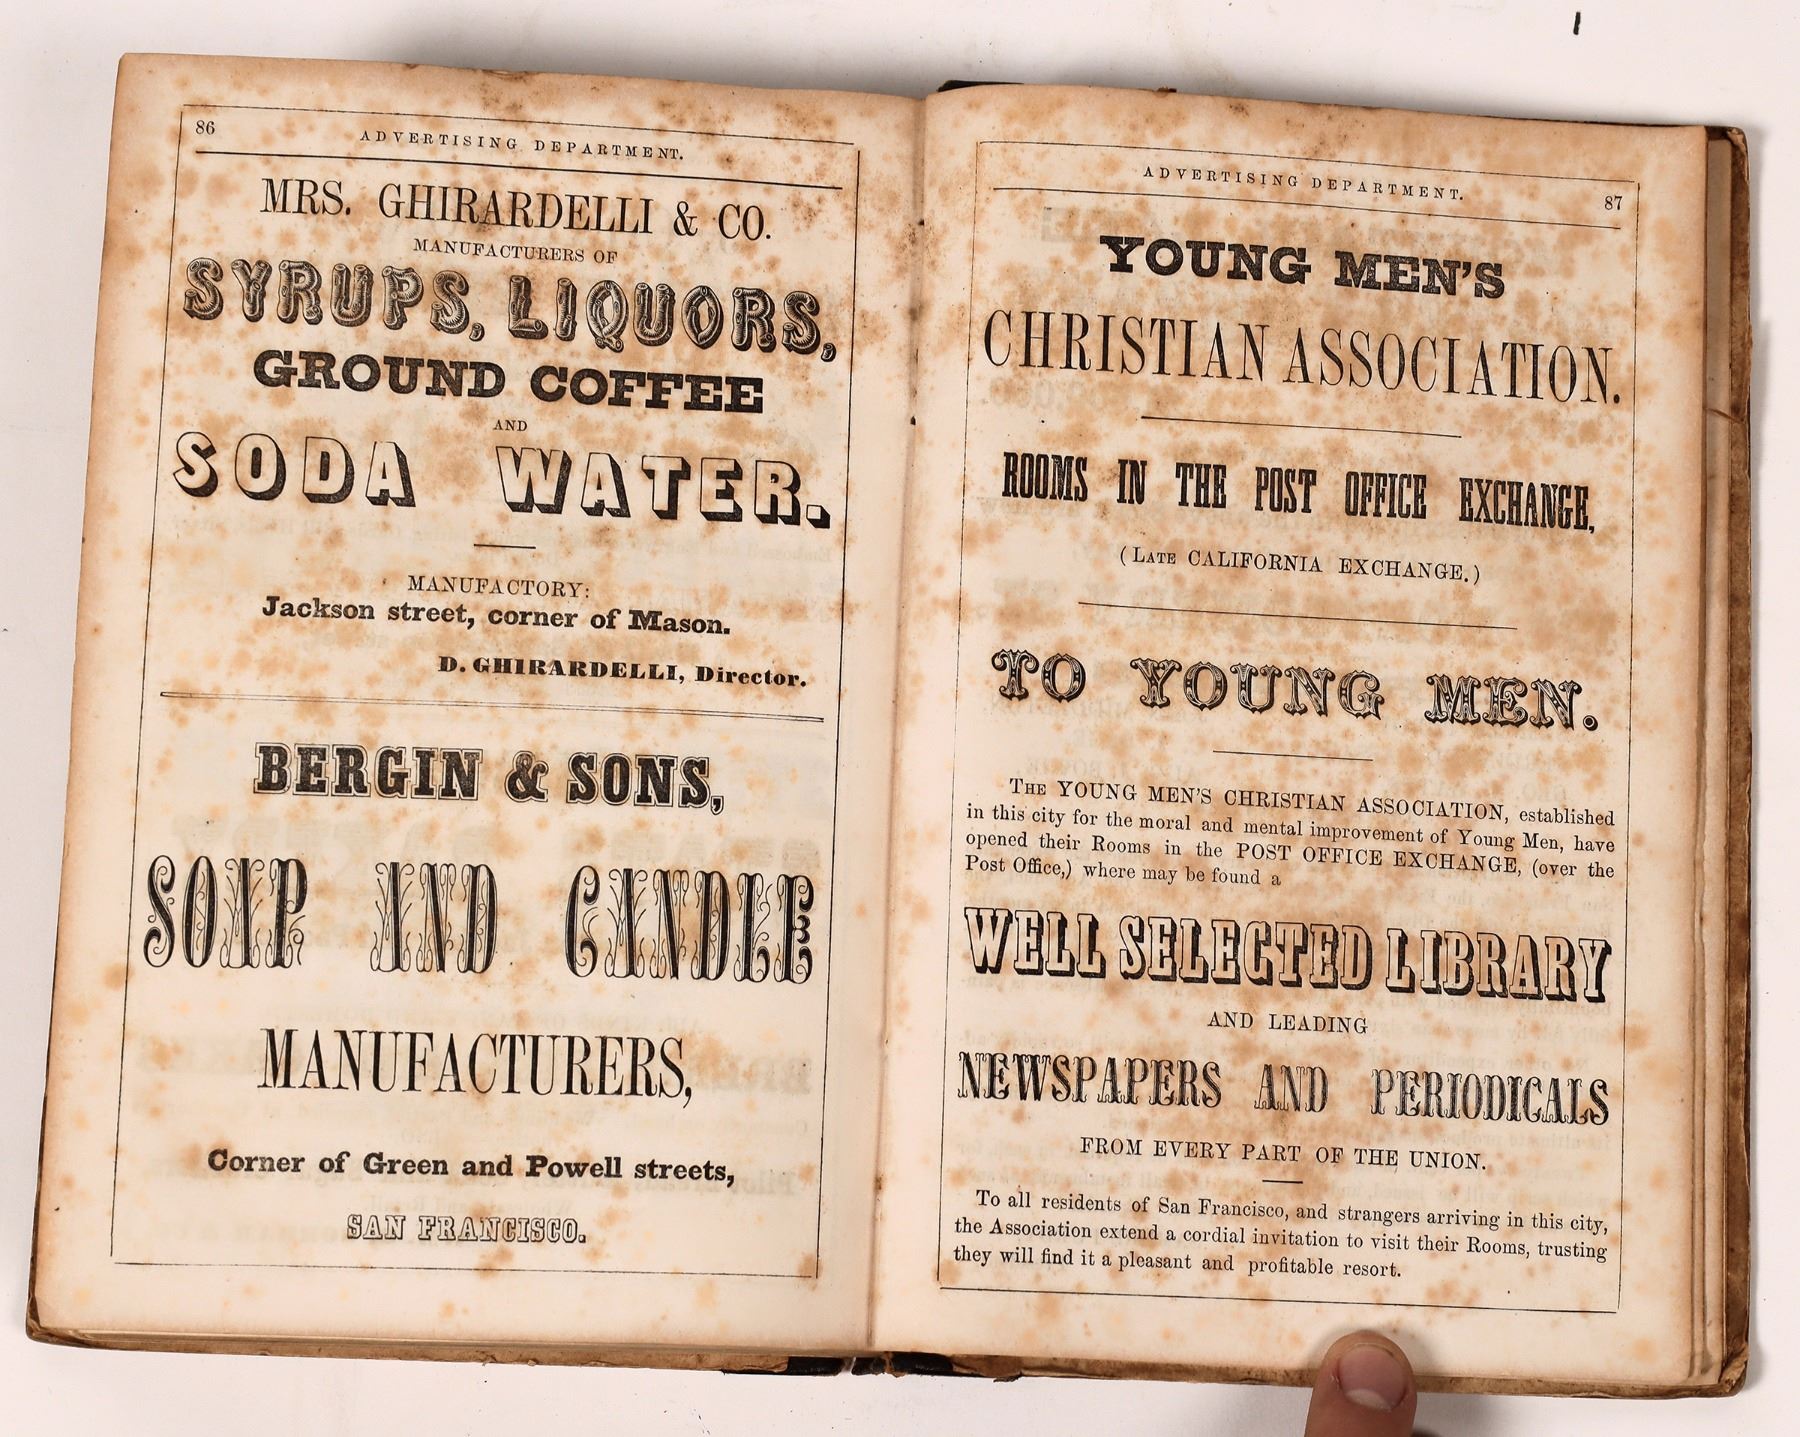 86
ADVERTISING DEPARTMENT.
MRS. GHIRARDELLI & CO.
MANUFACTURERS OF
SYRUPS, LIQUORS,
GROUND COFFEE
AND
SODA WATER.
MANUFACTORY:
Jackson street, corner of Mason.
D. GHIRARDELLI, Director.
BERGIN & SONS,
SOAP AND CANDLE
MANUFACTURERS,
Corner of Green and Powell streets,
SAN FRANCISCO.
ADVERTISING DEPARTMENT.
87
YOUNG MEN'S
CHRISTIAN ASSOCIATION.
ROOMS IN THE POST OFFICE EXCHANGE,
(LATE CALIFORNIA EXCHANGE.)
TO YOUNG MEN.
THE YOUNG MEN'S CHRISTIAN ASSOCIATION, established
in this city for the moral and mental improvement of Young Men, have
opened their Rooms in the POST OFFICE EXCHANGE, (over the
Post Office,) where may be found a
WELL SELECTED LIBRARY
AND LEADING
NEWSPAPERS AND PERIODICALS
FROM EVERY PART OF THE UNION.
To all residents of San Francisco, and strangers arriving in this city,
the Association extend a cordial invitation to visit their Rooms, trusting
they will find it a pleasant and profitable resort.